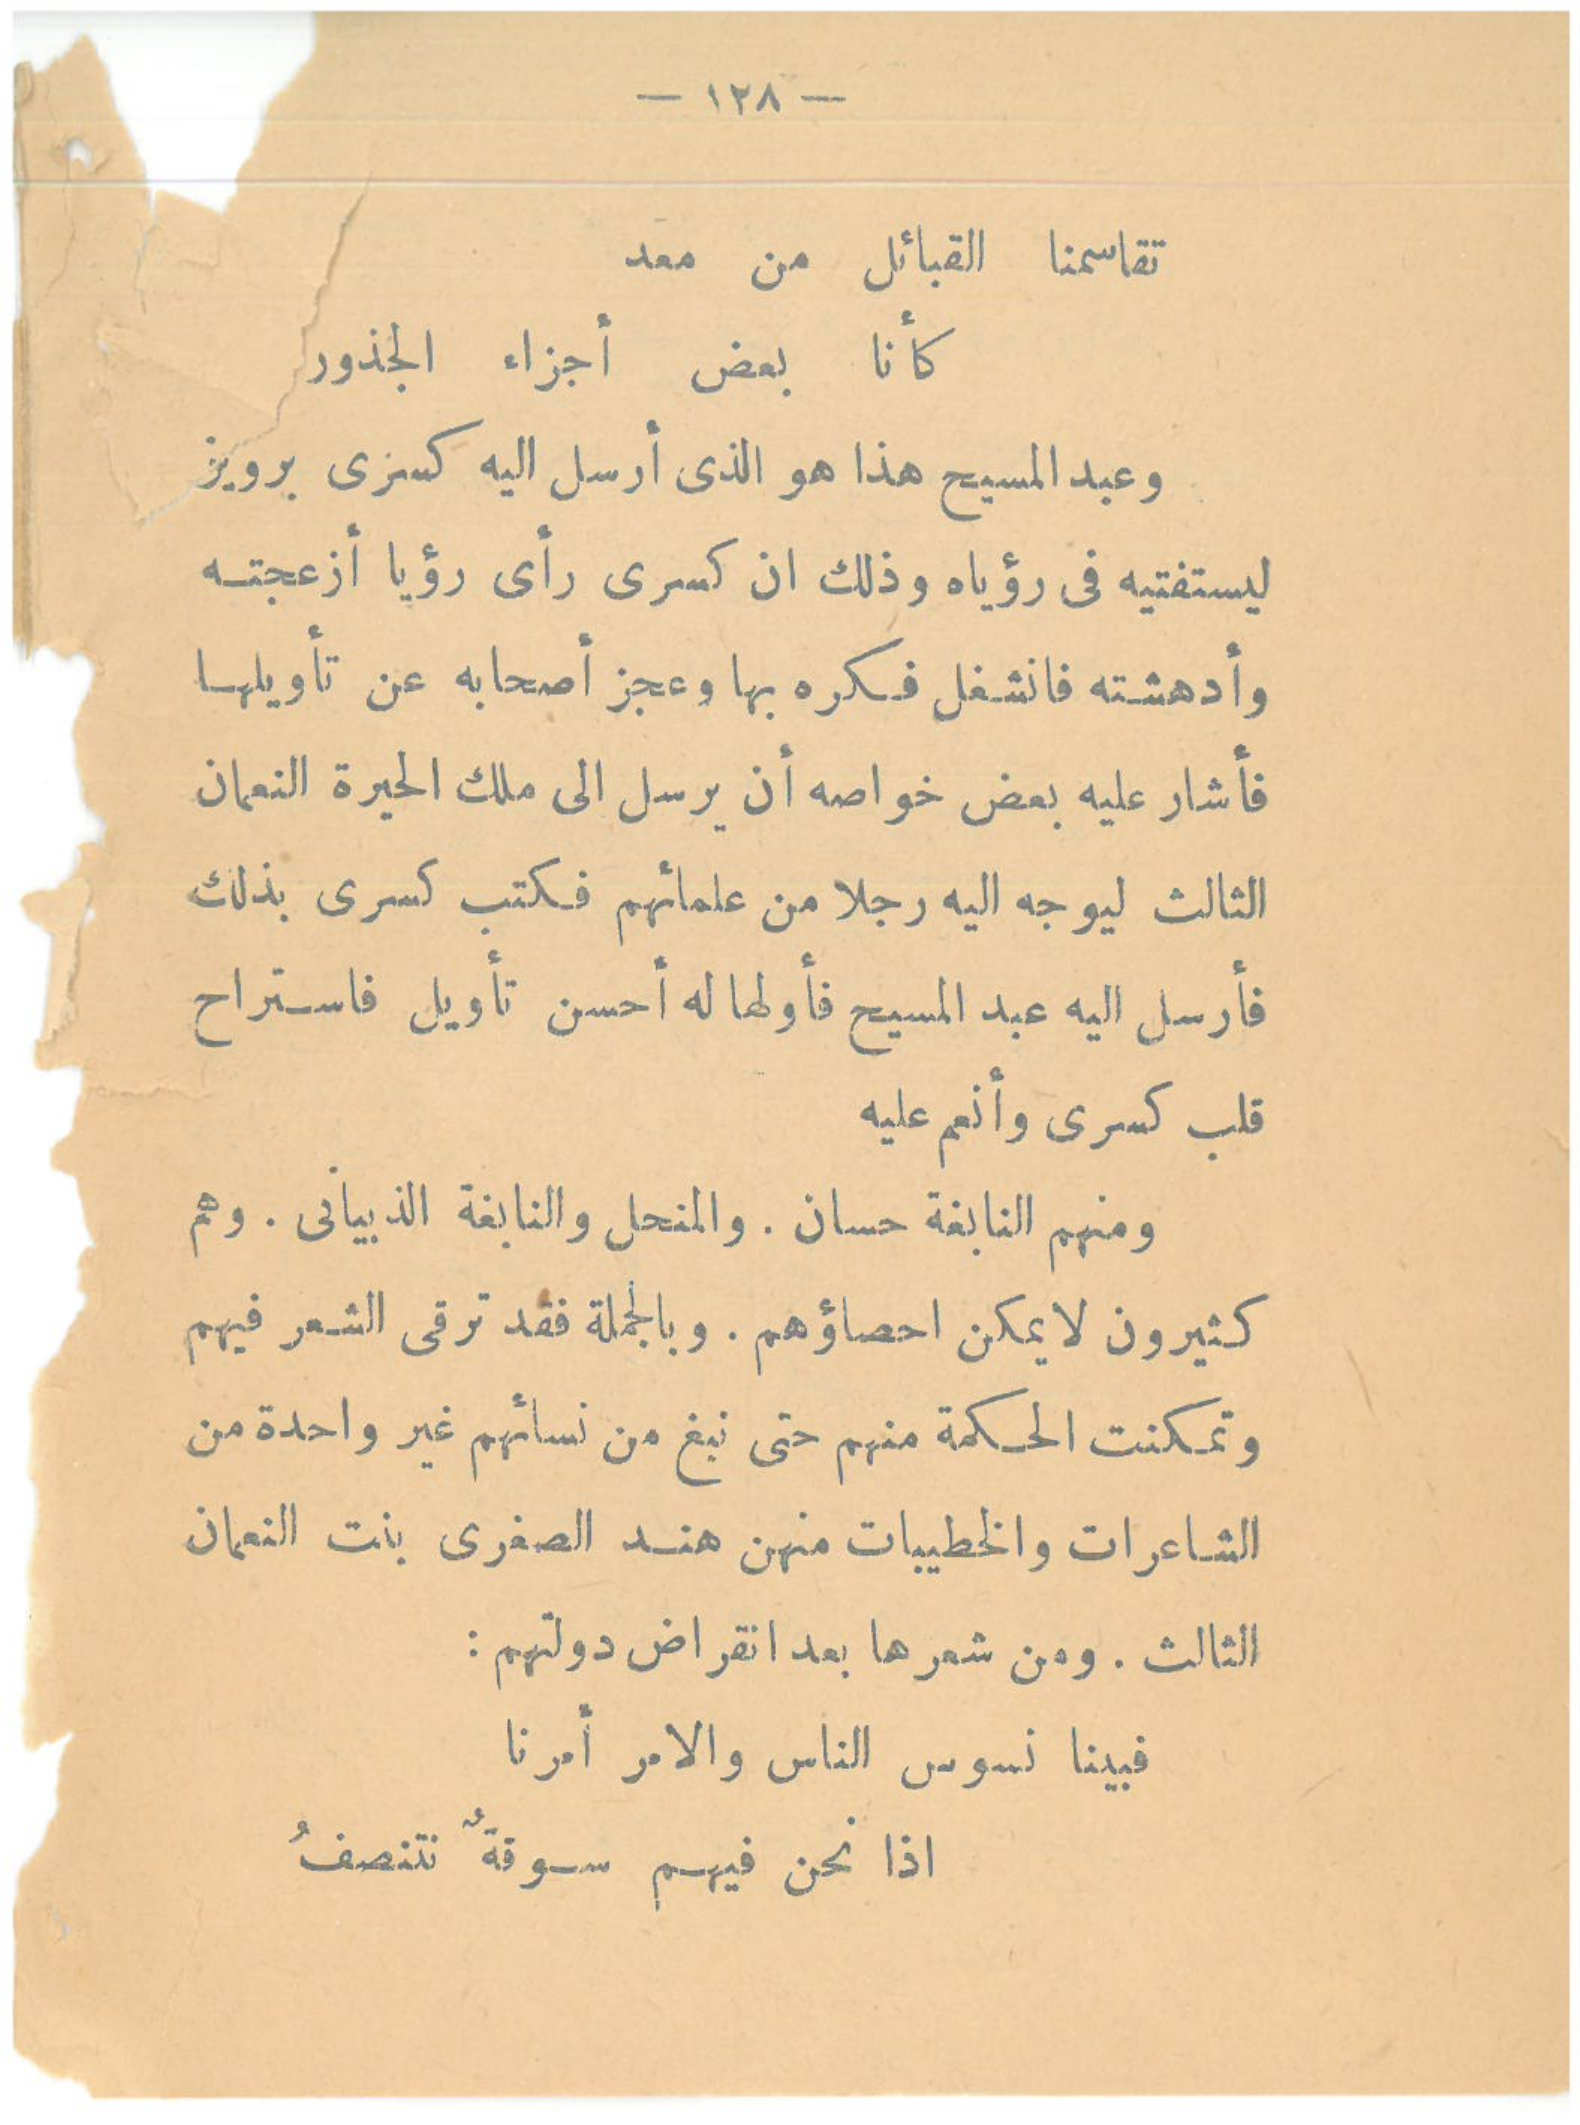 — ١٢٨ —
تقاسمنا القبائل من معد
كأنا بعض أجزاء الجذور
وعبد المسيح هذا هو الذى أرسل اليه كسرى برويز
ليستفتيه فى رؤياه وذلك ان كسرى رأى رؤيا أزعجته
وأدهشته فانشغل فكره بها وعجز أصحابه عن تأويلها
فأشار عليه بعض خواصه أن يرسل الى ملك الحيرة النعمان
الثالث ليوجه اليه رجلا من علمائهم فكتب كسرى بذلك
فأرسل اليه عبد المسيح فأولها له أحسن تأويل فاستراح
قلب كسرى وأنعم عليه
ومنهم النابغة حسان . والمنحل والنابغة الذبيانى . وهم
كثيرون لا يمكن احصاؤهم . وبالجملة فقد ترقى الشعر فيهم
وتمكنت الحكمة منهم حتى نبغ من نسائهم غير واحدة من
الشاعرات والخطيبات منهن هند الصغرى بنت النعمان
الثالث . ومن شعرها بعد انقراض دولتهم :
فبينا نسوس الناس والامر أمرنا
اذا نحن فيهم سوقةٌ نتنصفُ